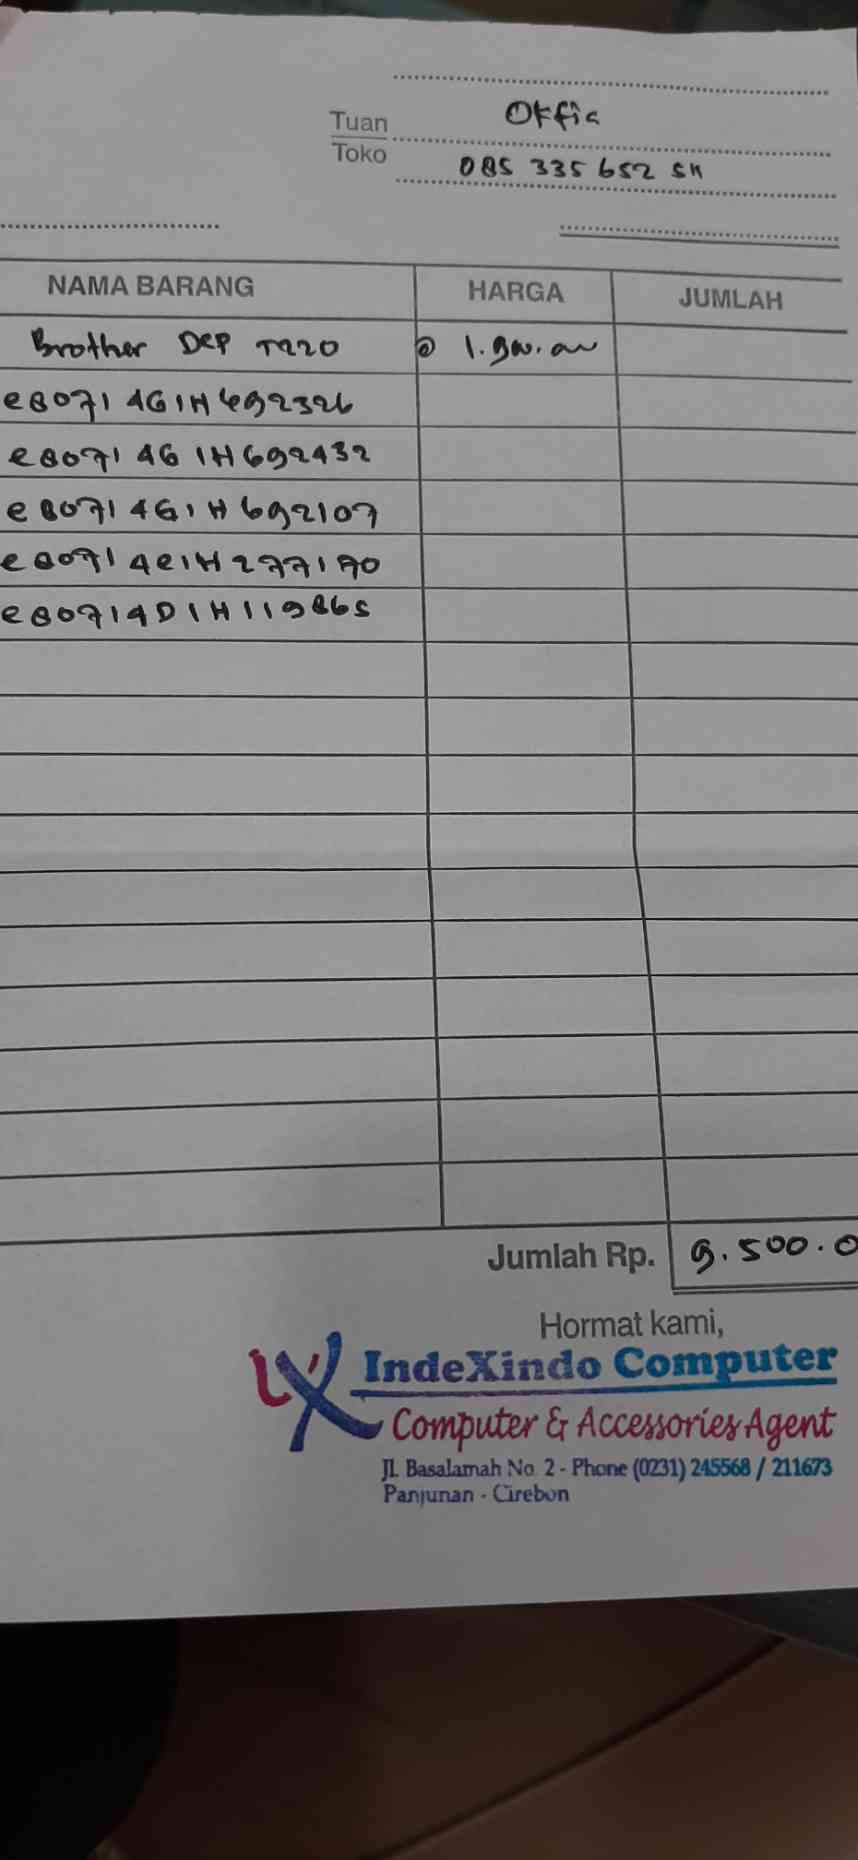 Tuan
Toko
Okfia
085 335 652 511
NAMA BARANG HARGA JUMLAH
Brother DCP T220 @ 1.900.000
E80714G1H692326
E80714G1H692432
E80714G1H692107
E80714E1H277170
E80714D1H119865
Jumlah Rp. 9.500.0
Hormat kami,
IndeXindo Computer
Computer & Accessories Agent
Jl. Basalamah No. 2 - Phone (0231) 245568 / 211673
Panjunan - Cirebon